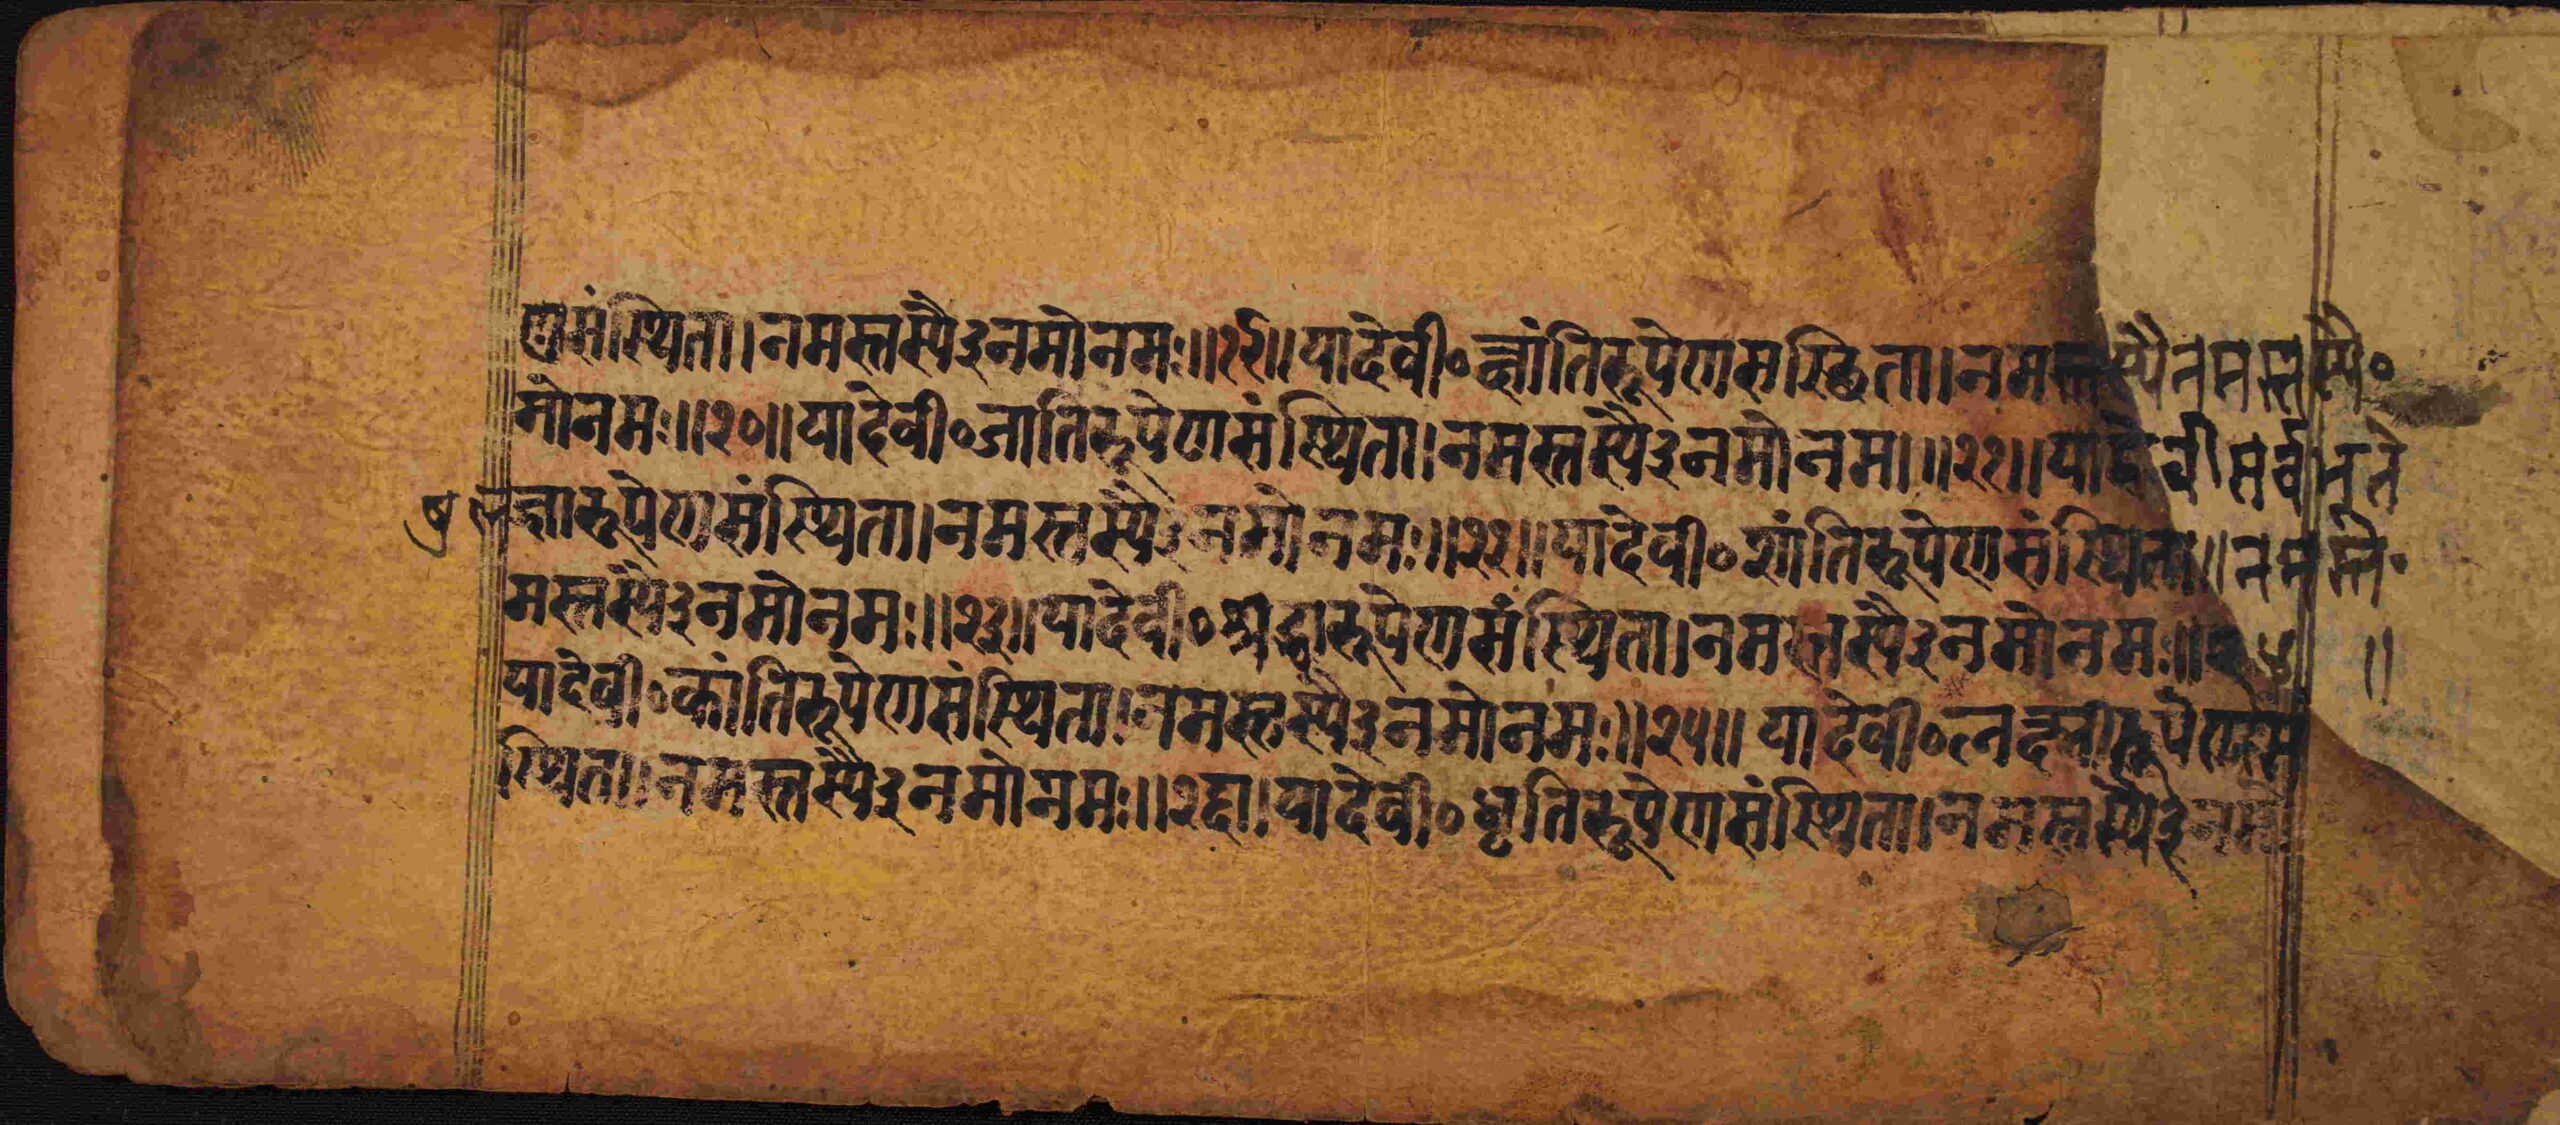 णसंस्थिता।नमस्तस्यै३नमोनमः॥१९॥यादेवी०क्षांतिरूपेणसस्थिता।नमस्तस्यैनमस्तस्यै०
मोनमः॥२०॥यादेवी०जातिरूपेणसंस्थिता।नमस्तस्यै३नमोनम।॥२१॥यादेवीसर्वभूते
षुलज्जारूपेणसंस्थिता।नमस्तस्यै३नमोनमः॥२२॥यादेवी०शांतिरूपेणसंस्थिता॥नमस्त०
मस्तस्यै३नमोनमः॥२३॥यादेवी०श्रद्धारूपेणसंस्थिता।नमस्तस्यै३नमोनमः॥२४॥
यादेवी०कांतिरूपेणसंस्थिता।नमस्तस्यै३नमोनमः॥२५॥यादेवी०लक्ष्मीरूपेणसं
स्थिता।नमस्तस्यै३नमोनमः॥२६॥यादेवी०धृतिरूपेणसंस्थिता।नमस्तस्यै३नमो